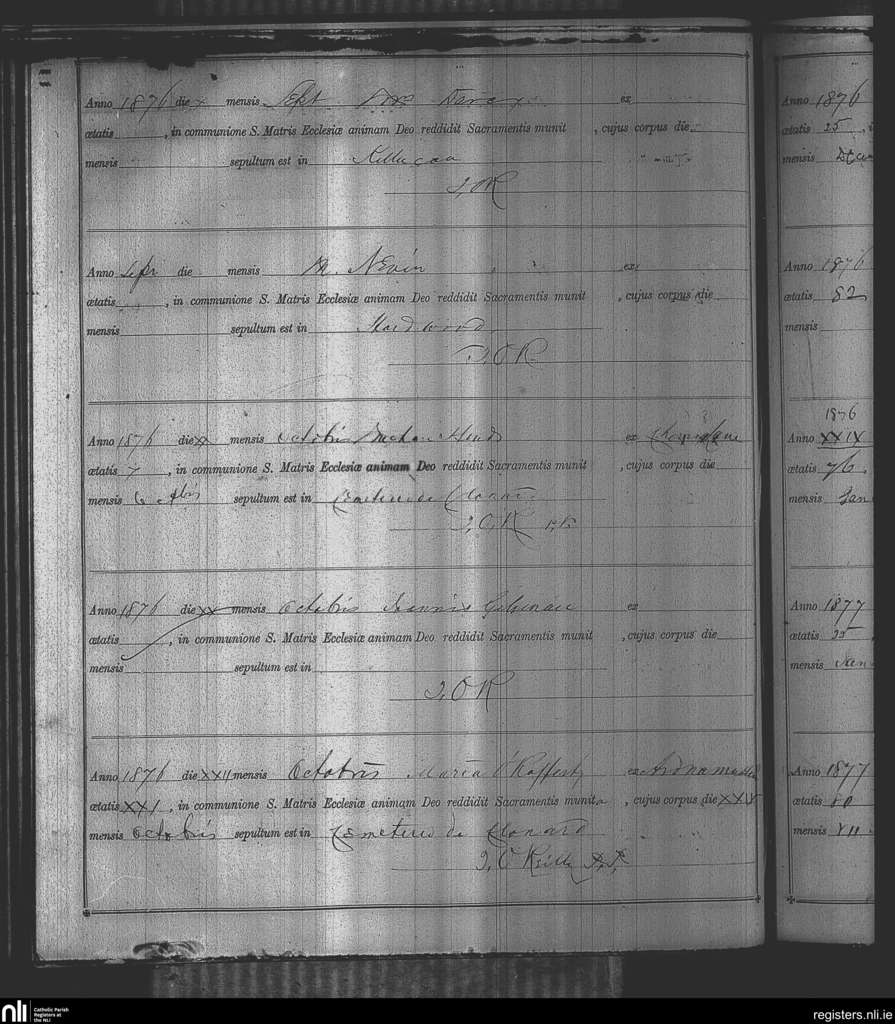 Anno 1876 die x mensis Sept ex
ætatis , in communione S. Matris Ecclesiæ animam Deo reddidit Sacramentis munit , cujus corpus die
mensis sepultum est in Killucan
J, OK
Anno Sept die mensis M. Nevin ex
ætatis , in communione S. Matris Ecclesiæ animam Deo reddidit Sacramentis munit , cujus corpus die
mensis sepultum est in Hardwood
J. O K.
Anno 1876 die xx mensis Octobris ex
ætatis 7 , in communione S. Matris Ecclesiæ animam Deo reddidit Sacramentis munit , cujus corpus die
mensis 6 sepultum est in Cemeterio de Clonard
J, O, K P.P.
Anno 1876 die xx mensis Octobris Joannis ex
ætatis , in communione S. Matris Ecclesiæ animam Deo reddidit Sacramentis munit , cujus corpus die
mensis sepultum est in
J, O K
Anno 1876 die XXII mensis Octobris Maria O'Rafferty ex
ætatis XXI , in communione S. Matris Ecclesiæ animam Deo reddidit Sacramentis munita , cujus corpus die XXIV
mensis Octobris sepultum est in Cemeterio de Clonard
J, O'Keille P.P.
Anno 1876
ætatis 25
mensis
Anno 1876
ætatis 82
mensis
1876
Anno XXIX
ætatis 76
mensis Jan
Anno 1877
ætatis 25
mensis
Anno 1877
ætatis 80
mensis VII
nli
Catholic Parish
Registers at
the NLI
registers.nli.ie